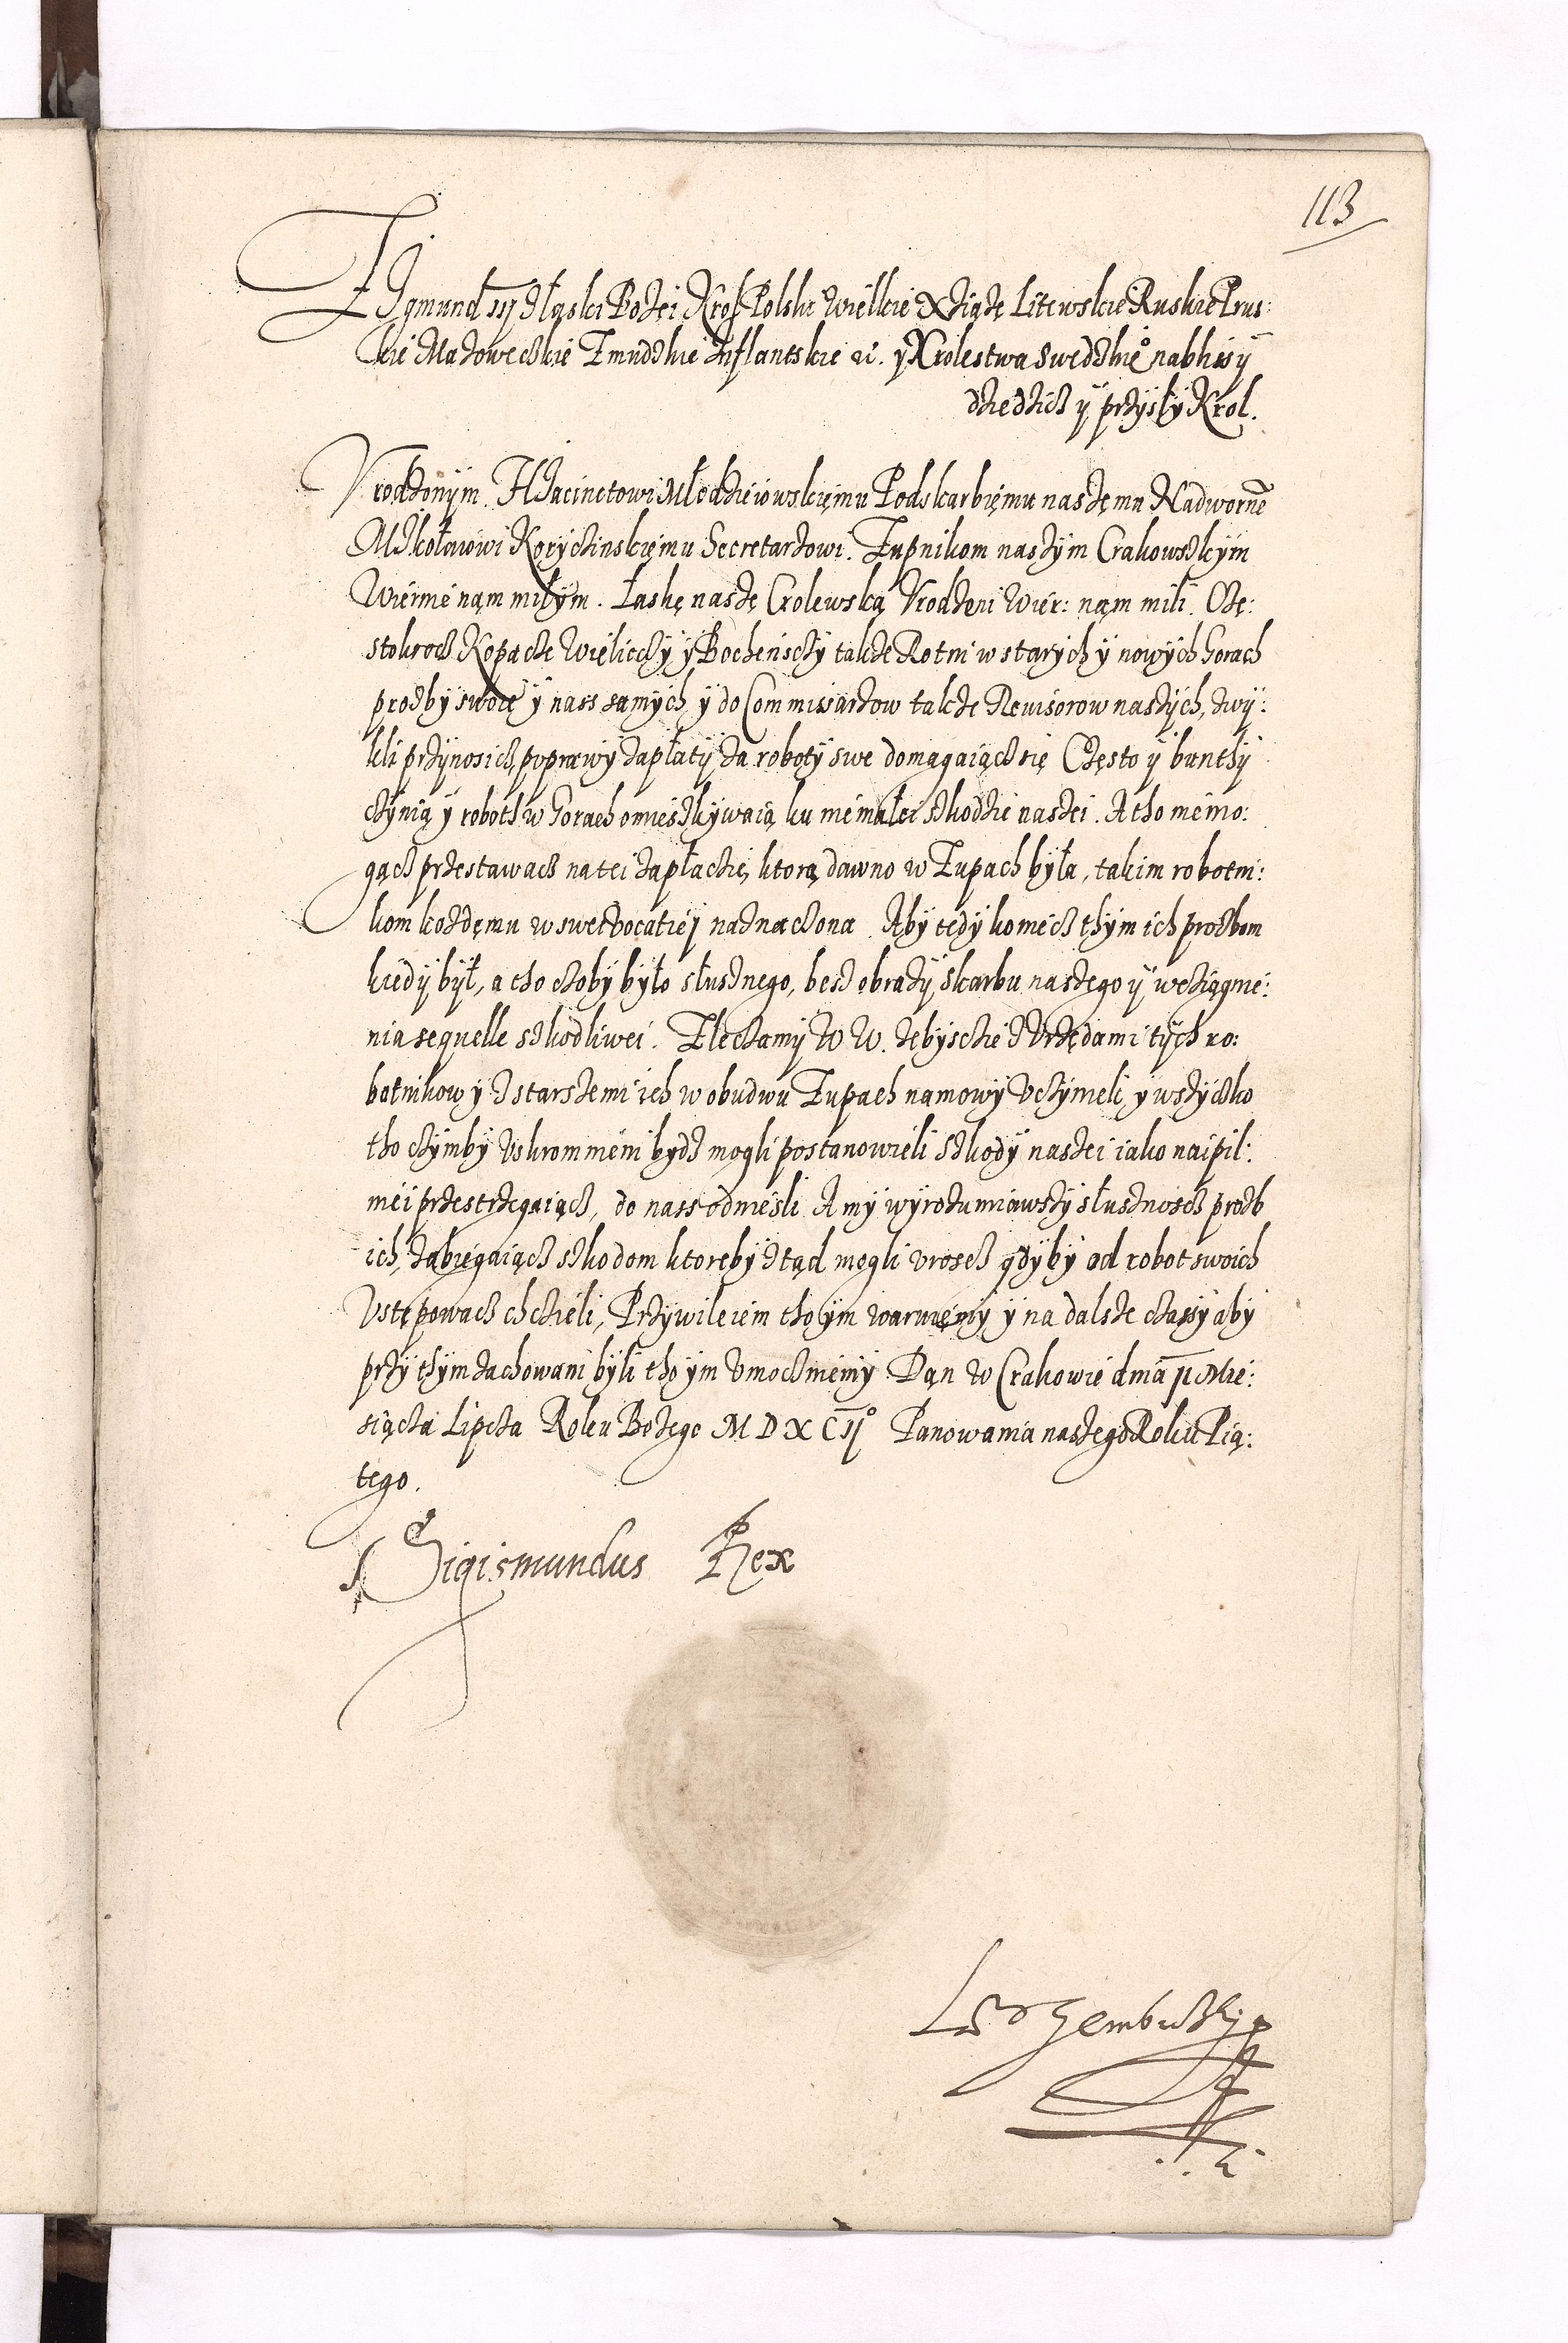 113
Zÿgmund III Z Łaski Bożei Krol Polski Wielkie Xżiążę Litewskie Ruskie Prus:
kie Mazoweczkie Żmudzkie Inflantskie etc. ÿ Krolestwa Swedzkieº nabliżs̀zÿ
dziedzicz ÿ przÿsłÿ Krol.
Vrodzonÿm HJacinctowi Młodzieiowskięmu Podskarbięmu naszęmu Nadwornē
MJkołaiowi Korÿczinskięmu Secretarzowi. Żupnikom naszÿm Crakowskÿm
Wiernie nąm miłÿm. Łaskę naszę Crolewską Vrodzeni Wier: nąm mili. Czę:
stokrocz Kopacze Więliczcÿ ÿ Bochenśczÿ także Rotni w starÿch ÿ nowÿch Gorach
prozbÿ swoie ÿ nass samÿch ÿ do Commissarzow także Revisorow naszÿch, zwÿ:
kli przÿnosicz, poprawÿ zapłatÿ za robotÿ swe domagaiącz się Często ÿ bunthÿ
czÿnią ÿ roboth w Gorach omieszkÿwaią ku niemałei szkodzie naszei. A tho niemo:
gącz przestawacz na tei zapłaczie, ktorą dawno w Żupach była, takim robotni:
kom każdęmu w swei vocatiej naznaczona Abÿ tedÿ koniecz thÿm ich prozbom
kiedÿ bÿł, a tho czobÿ bÿło słusznego, bez obrazÿ skarbu naszęgo ÿ wcziągnie:
nia sequelle szkodliwei. Zleczamÿ W W. żebÿsczie z Vrzędami tÿch ro:
botnikow ÿ z starszemi ich w obudwu Żupach namowÿ Vczÿnieli, ÿ wszÿczko
tho czÿmbÿ Vskromnieni bÿdz mogli postanowieli szkodÿ naszei iako naipil:
niei przestrzegaiącz, do nass odniesli A mÿ wÿrozumiawszÿ słusznoscz prozb
ich, zabiegaiącz szkodom ktorebÿ ztąd mogli vrosz gdÿbÿ od robot swoich
Vstępowacz chczieli, Przÿwileiem tho ÿm waruiemÿ ÿ na dalsze czassÿ abÿ
przÿ thÿm zachowani bÿli tho ÿm Vmoczniemÿ Dąn w Crakowie dniā II Mie:
siącza Lipcza Roku Bożego M D X C IIº Panowania naszego Roku Pią:
tego.
Sigismundus Rex